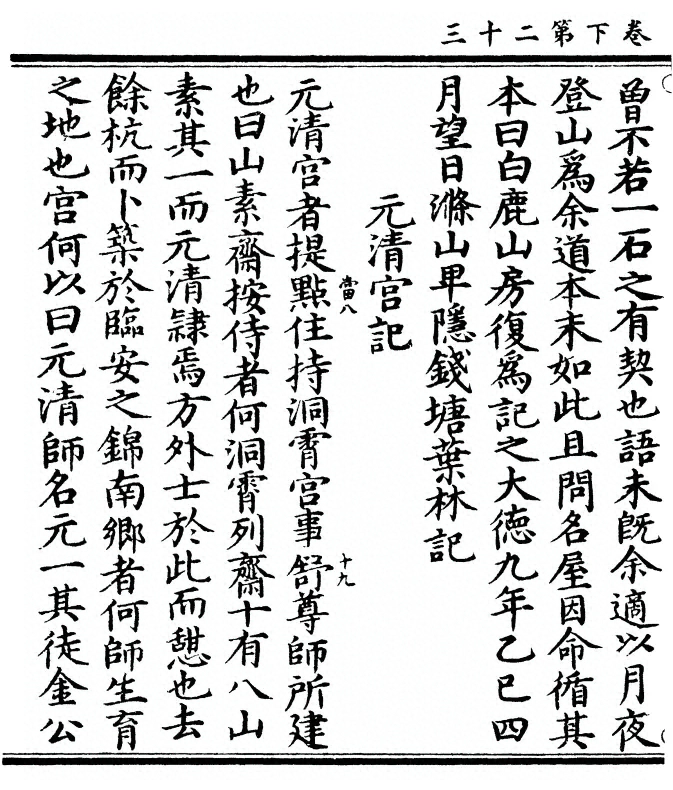 卷下第二十三
曽不若一石之有契也語未既余適以月夜
登山爲余道本末如此且問名屋因命循其
本曰白鹿山房復爲記之大徳九年乙巳四
月望日滌山畢隱錢塘葉林記
元清宫記
元清宫者提點住持洞霄宫事舒尊師所建
當八
十九
也曰山素齋按侍者何洞霄列齋十有八山
素其一而元清隷焉方外士於此而憇也去
餘杭而卜築於臨安之錦南鄉者何師生育
之地也宫何以曰元清師名元一其徒金公